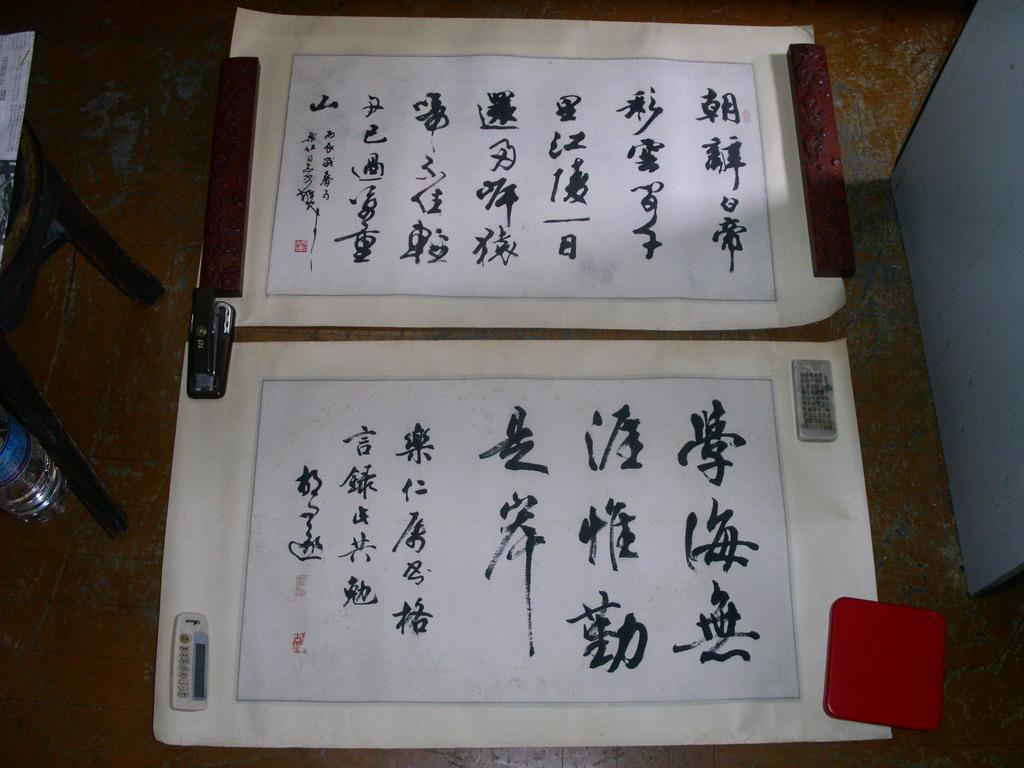 朝辭白帝
彩雲間千
里江陵一日
還兩岸猿
啼不住輕
舟已過萬重
山
學海無
涯惟勤
是岸
樂仁屬書格
言錄此共勉